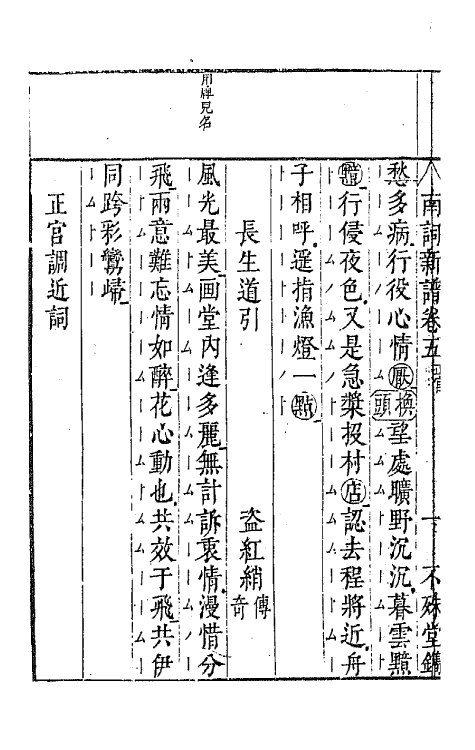 南詞新譜卷五 不殊堂鐫
愁多病行役心情厭換頭望處曠野沉沉暮雲黯
黯行侵夜色又是急槳投村店認去程將近舟
子相呼遥指漁燈一點
長生道引 盗紅綃傳奇
用牌兒名
風光最美画堂內逢多麗無計訴衷情漫惜分
飛兩意難忘情如醉花心動也共效于飛共伊
同跨彩鸞歸
正宮調近詞